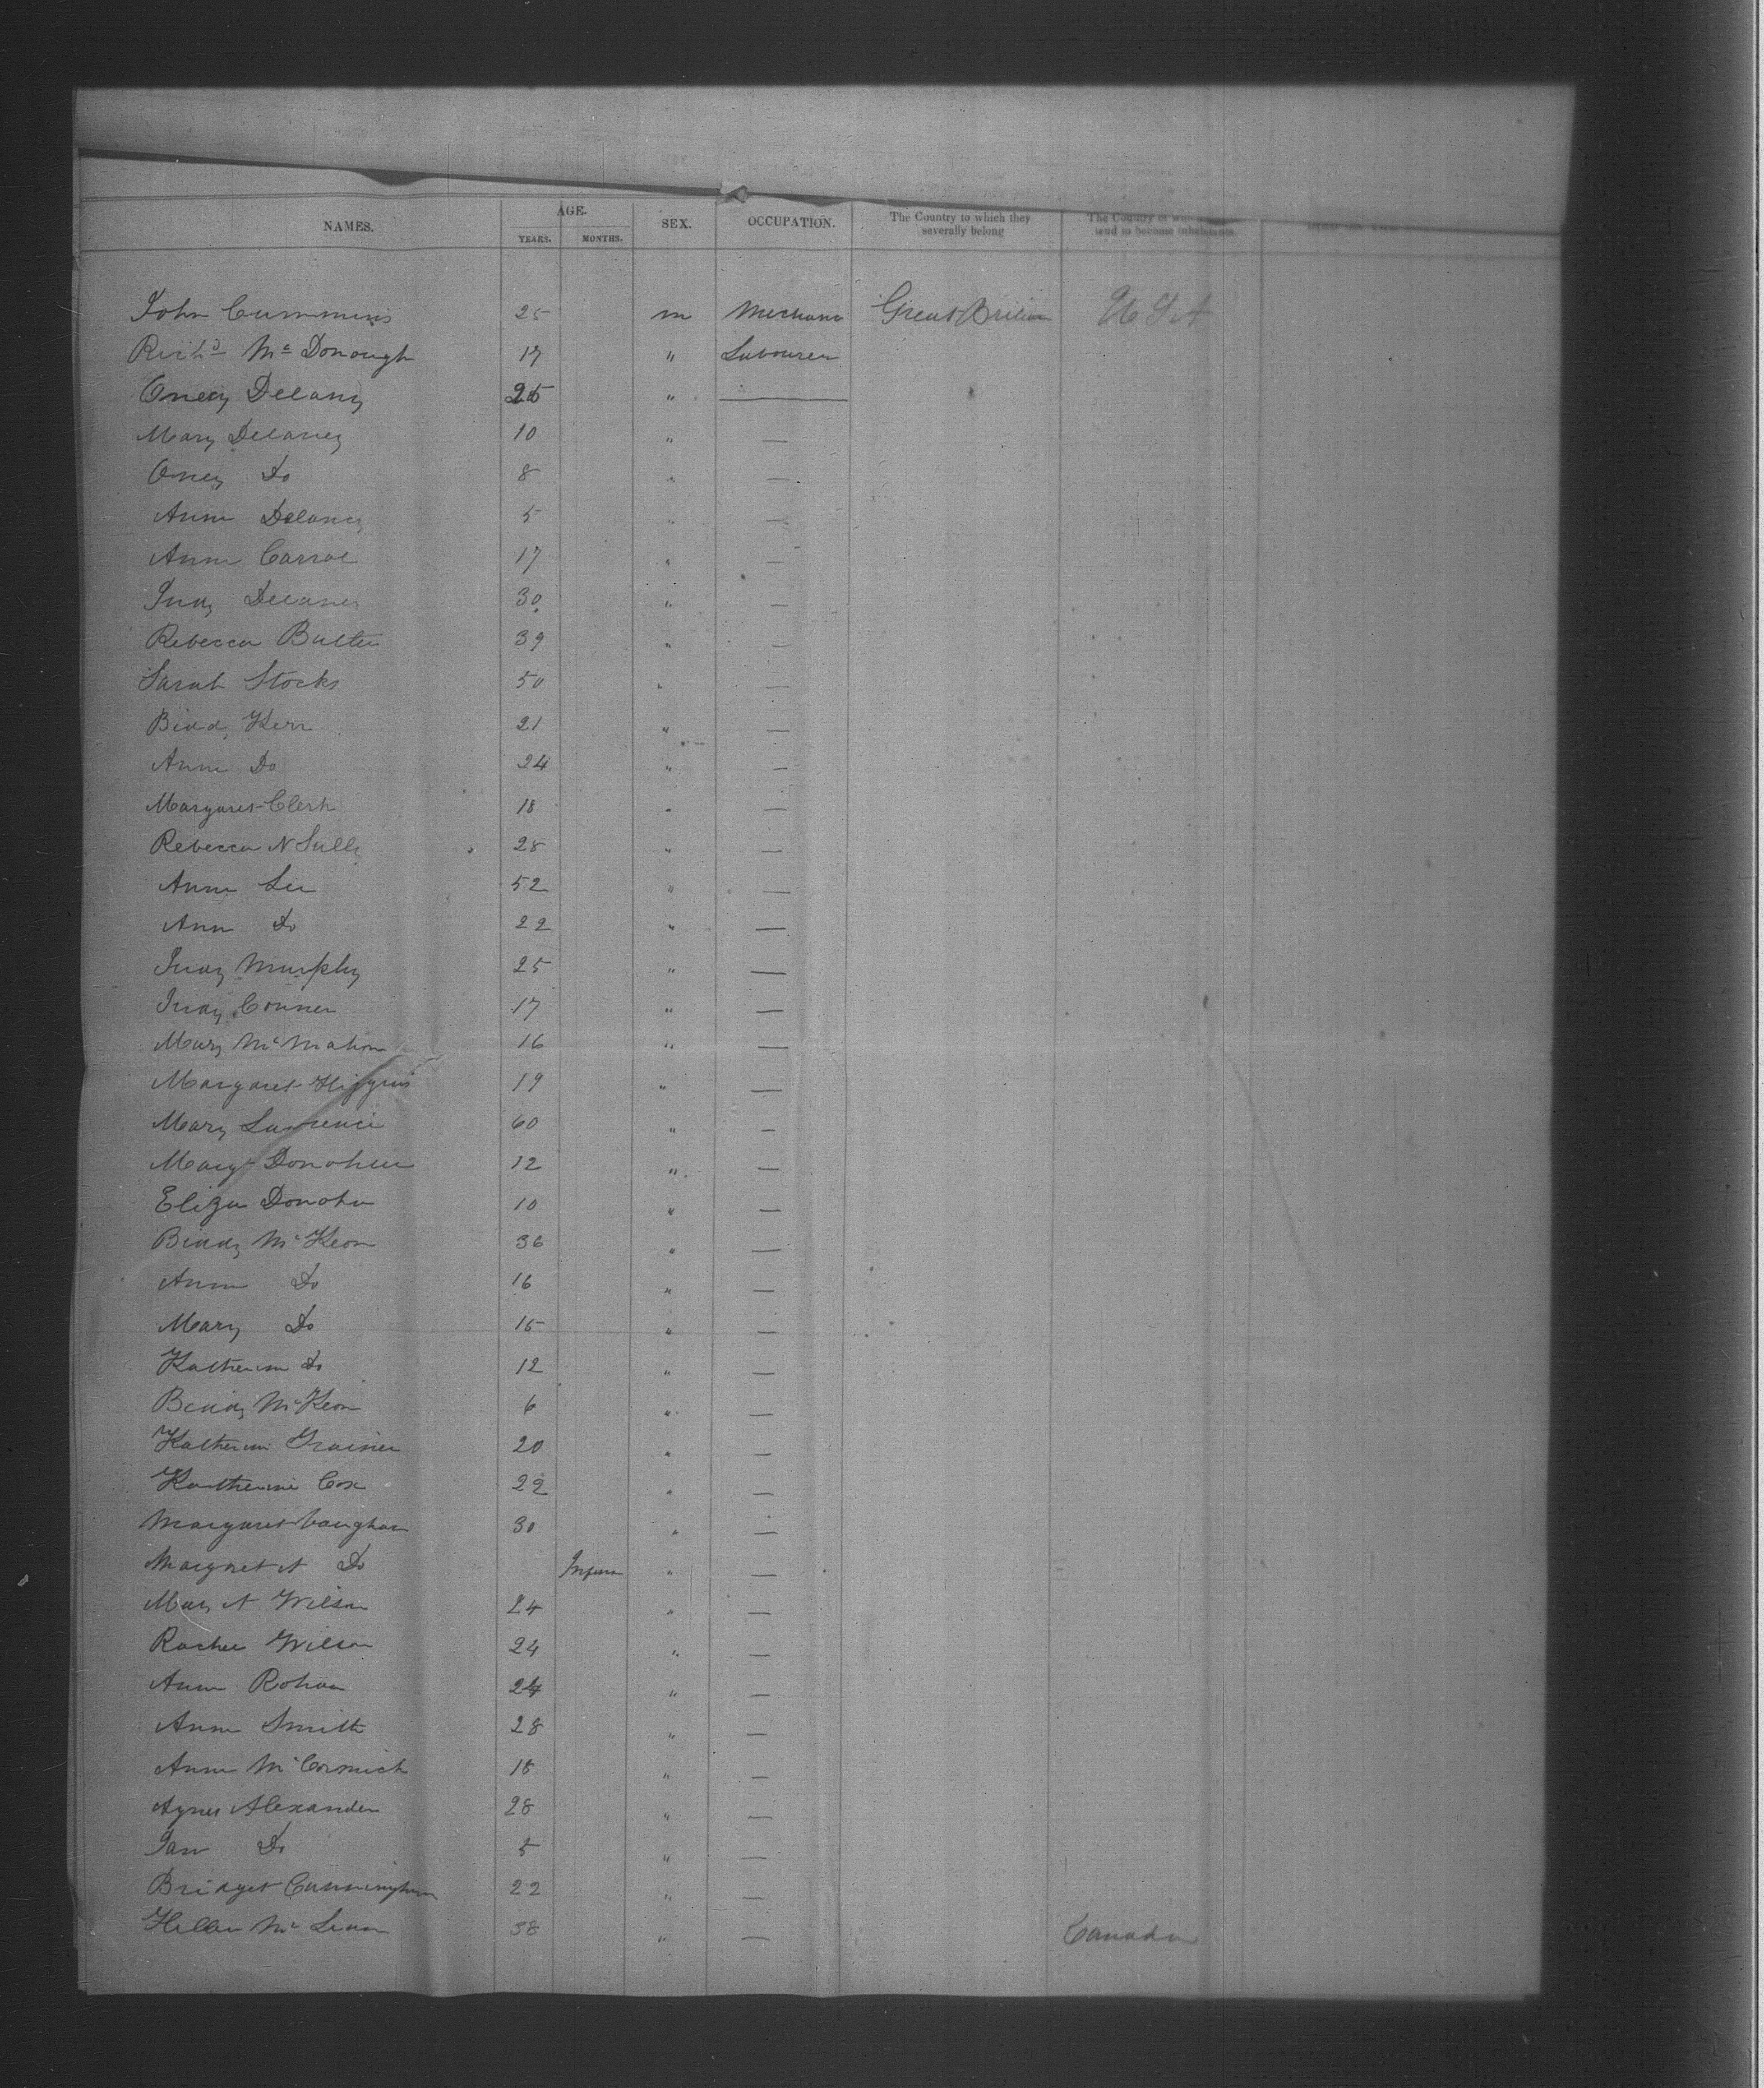 NAMES. AGE. YEARS. MONTHS. SEX. OCCUPATION. The Country to which they severally belong The Country of tend to become inhabitants.
John Cummins 25 m Mechanic Great Britain U S A
Richd Mc Donough 17 " Labourer
Oney Delany 25 "
Mary Delaney 10 " —
Oney Do 8 " —
Ann Delaney 5 " —
Ann Carrol 17 " —
Judy Delaney 30 " —
Rebecca Butler 39 " —
Sarah Stocks 50 " —
Bidd, Kerr 21 " —
Ann Do 24 " —
Margaret Clerk 18 " —
Rebecca N Sully 28 " —
Ann Lee 52 " —
Ann Do 22 " —
Judy Murphy 25 " —
Judy Conner 17 " —
Mary McMahon 16 " —
Margaret Higgins 19 " —
Mary Lawrence 60 " —
Mary Donohue 12 " —
Eliza Donoho 10 " —
Biddy McKeon 36 " —
Ann Do 16 " —
Mary Do 15 " —
Katherine Do 12 " —
Biddy McKeon 6 " —
Katherine Grainer 20 " —
Katherine Cox 22 " —
Margaret Vaughan 30 " —
Margaret A Do Infan " —
Mary A Wilson 24 " —
Rachel Wilson 24 " —
Ann Rohan 24 " —
Ann Smith 28 " —
Ann McCormick 18 " —
Agnes Alexander 28 " —
Jane Do 5 " —
Bridget Cunningham 22 " —
Hellen Mc Lean 38 " — Canada